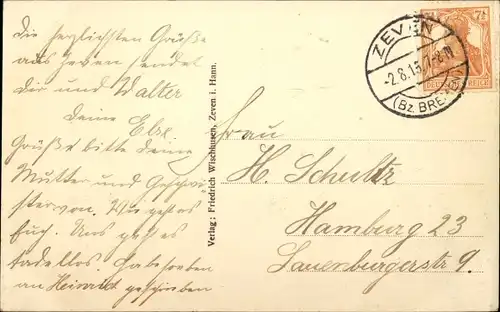 Die herzlichsten Grüße
aus Zeven sendet
Dir und Walter
Deine Else
Grüße bitte Deine
Mutter und Geschwi-
ster von. Wie geht es
Euch. Uns geht es
tadellos. Habe soeben
an Heinrich geschrieben
Verlag: Friedrich Wischhusen, Zeven i. Hann.
ZEVEN
-2.8.15.7-8N
(Bz. BREMEN)
7½
DEUTSCHES REICH
Frau
H. Schultz
Hamburg 23
Lauenburgerstr 9.